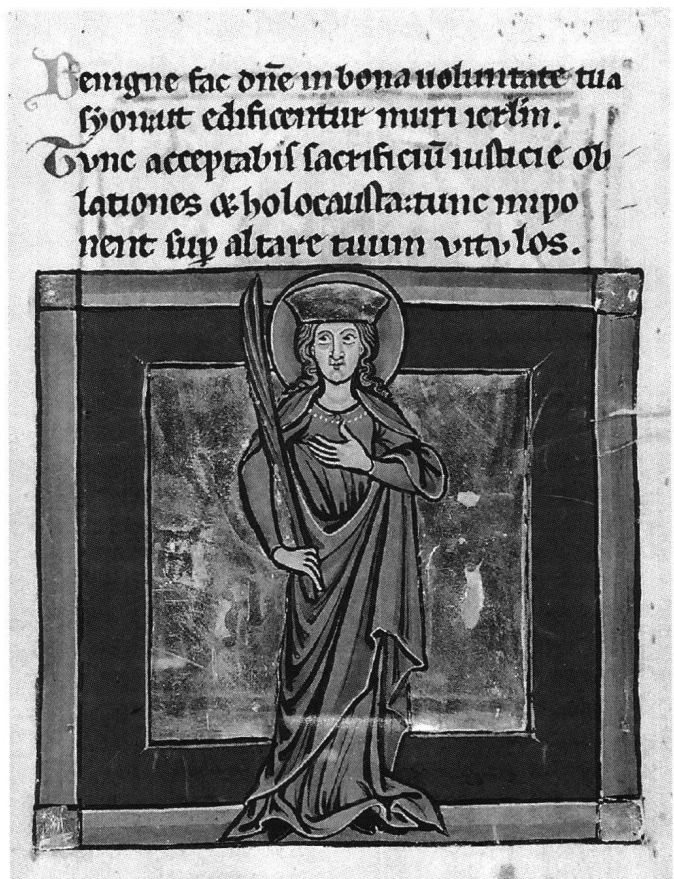 Benigne fac dn̄e in bona uoluntate tua
syon: ut edificentur muri ierl̄m.
Tunc acceptabis sacrificiū iusticie ob
lationes & holocausta: tunc inpo
nent sup̱ altare tuum vitulos.